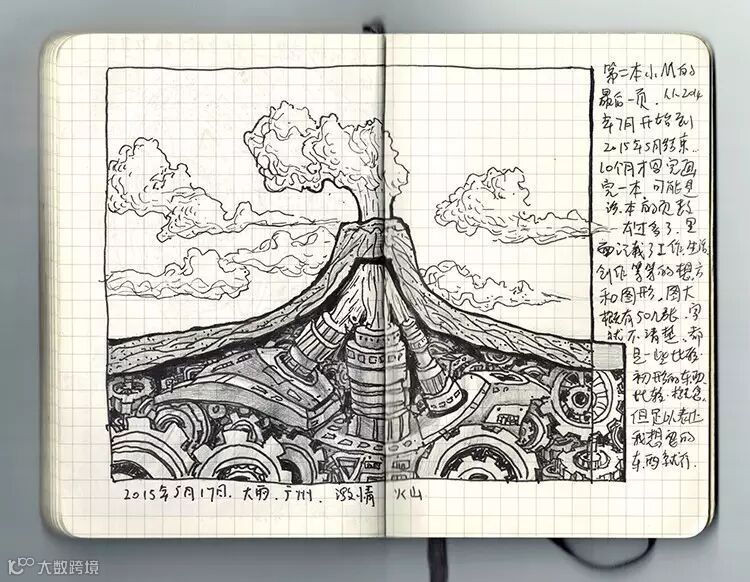 第二本小M的
最后一页. 从2014
年7月开始到
2015年5月结束.
10个月才图完画
完一本 可能是
这本的页数
太过多了. 里
面记载了工作.生活,
创作等等的想方
和图形. 图大
概有50几张. 字
就不清楚. 都
是一些比较
初形的东西
比较
但足以表达
我想留的
东西就行.
2015年5月17日. 大雨. 广州. 激情 火山
大数跨境